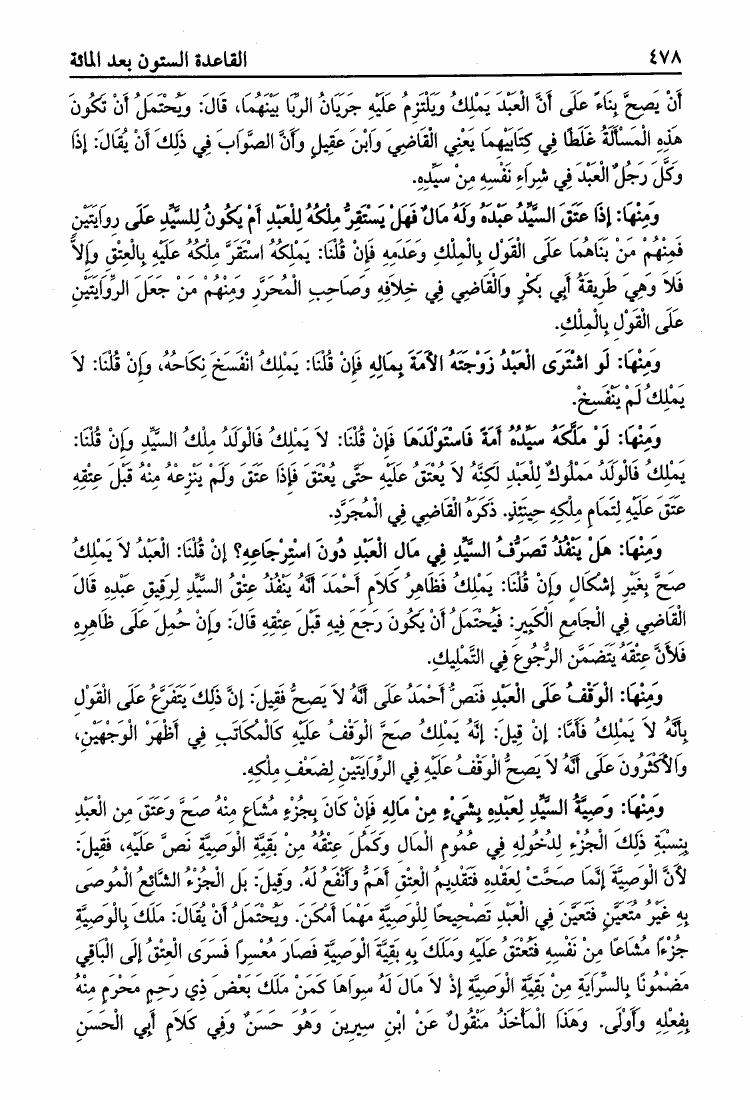 ٤٧٨ القاعدة الستون بعد المائة
أَنْ يَصِحَّ بِنَاءً عَلَى أَنَّ الْعَبْدَ يَمْلِكُ وَيَلْتَزِمُ عَلَيْهِ جَرَيَانُ الرِّبَا بَيْنَهُمَا، قَالَ: وَيُحْتَمَلُ أَنْ تَكُونَ
هَذِهِ الْمَسْأَلَةُ غَلَطًا فِي كِتَابَيْهِمَا يَعْنِي الْقَاضِيَ وَابْنَ عَقِيلٍ وَأَنَّ الصَّوَابَ فِي ذَلِكَ أَنْ يُقَالَ: إذَا
وَكَّلَ رَجُلٌ الْعَبْدَ فِي شِرَاءِ نَفْسِهِ مِنْ سَيِّدِهِ.
وَمِنْهَا: إذَا عَتَقَ السَّيِّدُ عَبْدَهُ وَلَهُ مَالٌ فَهَلْ يَسْتَقِرُّ مِلْكُهُ لِلْعَبْدِ أَمْ يَكُونُ لِلسَّيِّدِ عَلَى رِوَايَتَيْنِ
فَمِنْهُمْ مَنْ بَنَاهُمَا عَلَى الْقَوْلِ بِالْمِلْكِ وَعَدَمِهِ فَإِنْ قُلْنَا: يَمْلِكُهُ اسْتَقَرَّ مِلْكُهُ عَلَيْهِ بِالْعِتْقِ وَإِلاَّ
فَلاَ وَهِيَ طَرِيقَةُ أَبِي بَكْرٍ وَالْقَاضِي فِي خِلاَفِهِ وَصَاحِبِ الْمُحَرَّرِ وَمِنْهُمْ مَنْ جَعَلَ الرِّوَايَتَيْنِ
عَلَى الْقَوْلِ بِالْمِلْكِ.
وَمِنْهَا: لَو اشْتَرَى الْعَبْدُ زَوْجَتَهُ الأَمَةَ بِمَالِهِ فَإِنْ قُلْنَا: يَمْلِكُ انْفَسَخَ نِكَاحُهُ، وَإِنْ قُلْنَا: لاَ
يَمْلِكُ لَمْ يَنْفَسِخْ.
وَمِنْهَا: لَوْ مَلَّكَهُ سَيِّدُهُ أَمَةً فَاسْتَوْلَدَهَا فَإِنْ قُلْنَا: لاَ يَمْلِكُ فَالْوَلَدُ مِلْكُ السَّيِّدِ وَإِنْ قُلْنَا:
يَمْلِكُ فَالْوَلَدُ مَمْلُوكٌ لِلْعَبْدِ لَكِنَّهُ لاَ يُعْتَقُ عَلَيْهِ حَتَّى يُعْتَقَ فَإِذَا عَتَقَ وَلَمْ يَنْزِعْهُ مِنْهُ قَبْلَ عِتْقِهِ
عَتَقَ عَلَيْهِ لِتَمَامِ مِلْكِهِ حِينَئِذٍ. ذَكَرَهُ الْقَاضِي فِي الْمُجَرَّدِ.
وَمِنْهَا: هَلْ يَنْفُذُ تَصَرُّفُ السَّيِّدِ فِي مَالِ الْعَبْدِ دُونَ اسْتِرْجَاعِهِ؟ إنْ قُلْنَا: الْعَبْدُ لاَ يَمْلِكُ
صَحَّ بِغَيْرِ إشْكَالٍ وَإِنْ قُلْنَا: يَمْلِكُ فَظَاهِرُ كَلاَمِ أَحْمَدَ أَنَّهُ يَنْفُذُ عِتْقُ السَّيِّدِ لِرَقِيقِ عَبْدِهِ قَالَ
الْقَاضِي فِي الْجَامِعِ الْكَبِيرِ: فَيُحْتَمَلُ أَنْ يَكُونَ رَجَعَ فِيهِ قَبْلَ عِتْقِهِ قَالَ: وَإِنْ حُمِلَ عَلَى ظَاهِرِهِ
فَلأَنَّ عِتْقَهُ يَتَضَمَّنُ الرُّجُوعَ فِي التَّمْلِيكِ.
وَمِنْهَا: الْوَقْفُ عَلَى الْعَبْدِ فَنَصُّ أَحْمَدُ عَلَى أَنَّهُ لاَ يَصِحُّ فَقِيلَ: إنَّ ذَلِكَ يَتَفَرَّعُ عَلَى الْقَوْلِ
بِأَنَّهُ لاَ يَمْلِكُ فَأَمَّا: إنْ قِيلَ: إنَّهُ يَمْلِكُ صَحَّ الْوَقْفُ عَلَيْهِ كَالْمُكَاتَبِ فِي أَظْهَرِ الْوَجْهَيْنِ،
وَالأَكْثَرُونَ عَلَى أَنَّهُ لاَ يَصِحُّ الْوَقْفُ عَلَيْهِ فِي الرِّوَايَتَيْنِ لِضَعْفِ مِلْكِهِ.
وَمِنْهَا: وَصِيَّةُ السَّيِّدِ لِعَبْدِهِ بِشَيْءٍ مِنْ مَالِهِ فَإِنْ كَانَ بِجُزْءٍ مُشَاعٍ مِنْهُ صَحَّ وَعَتَقَ مِن الْعَبْدِ
بِنِسْبَةِ ذَلِكَ الْجُزْءِ لِدُخُولِهِ فِي عُمُومِ الْمَالِ وَكَمُلَ عِتْقُهُ مِنْ بَقِيَّةِ الْوَصِيَّةِ نَصَّ عَلَيْهِ، فَقِيلَ:
لأَنَّ الْوَصِيَّةَ إنَّمَا صَحَّتْ لِعِقْدِهِ فَتَقْدِيمُ الْعِتْقِ أَهَمُّ وَأَنْفَعُ لَهُ. وَقِيلَ: بَلِ الْجُزْءُ الشَّائِعُ الْمُوصَى
بِهِ غَيْرُ مُتَعَيَّنٍ فَتَعَيَّنَ فِي الْعَبْدِ تَصْحِيحًا لِلْوَصِيَّةِ مَهْمَا أَمْكَنَ. وَيُحْتَمَلُ أَنْ يُقَالَ: مَلَكَ بِالْوَصِيَّةِ
جُزْءًا مُشَاعًا مِنْ نَفْسِهِ فَتُعْتَقُ عَلَيْهِ وَمَلَكَ بِهِ بَقِيَّةَ الْوَصِيَّةِ فَصَارَ مُعْسِرًا فَسَرَى الْعِتْقُ إلَى الْبَاقِي
مَضْمُونًا بِالسِّرَايَةِ مِنْ بَقِيَّةِ الْوَصِيَّةِ إذْ لاَ مَالَ لَهُ سِوَاهَا كَمَنْ مَلَكَ بَعْضَ ذِي رَحِمٍ مَحْرَمٍ مِنْهُ
بِفِعْلِهِ وَأَوْلَى. وَهَذَا الْمَأْخَذُ مَنْقُولٌ عَنْ ابْنِ سِيرِينَ وَهُوَ حَسَنٌ وَفِي كَلاَمِ أَبِي الْحَسَنِ